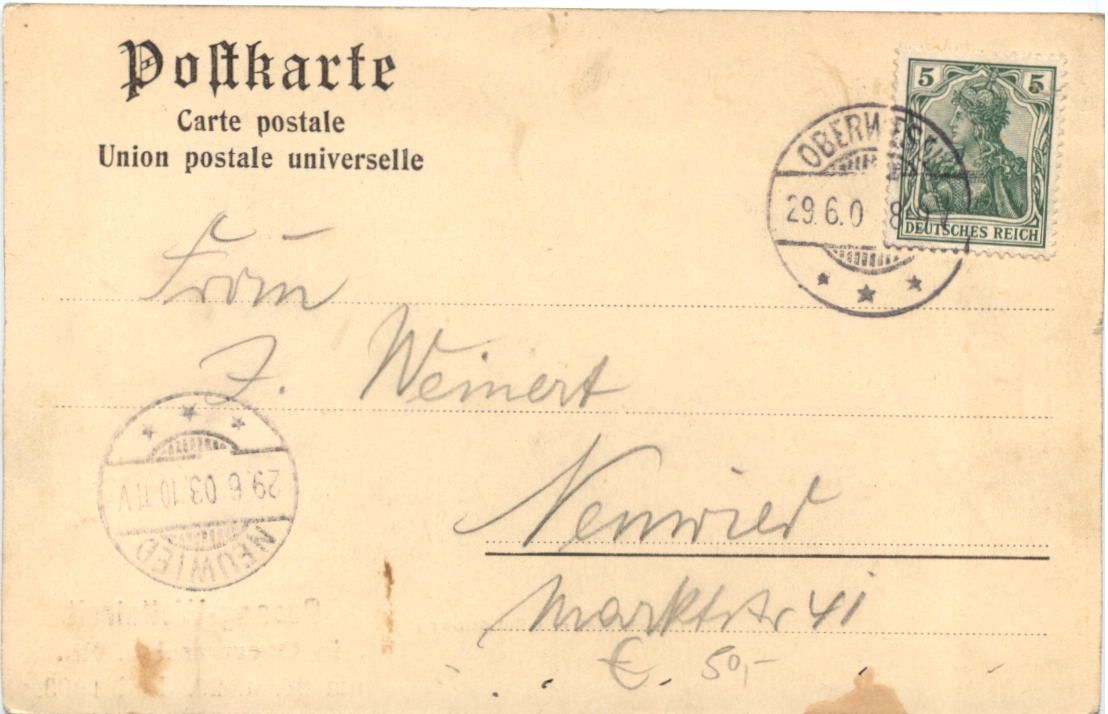 Postkarte
Carte postale
Union postale universelle
5 5
DEUTSCHES REICH
OBERWESEL
29.6.0 8-9V
Frau
J. Weinert
NEUWIED
29.6.03.10-11V
Neuwied
Marktstr 41
€. 50,-